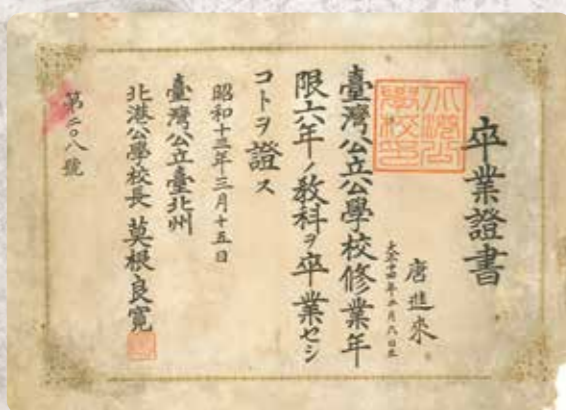 卒業證書
唐進來
大正十四年十月八日生
臺灣公立公學校修業年
限六年ノ教科ヲ卒業セシ
コトヲ證ス
昭和十三年三月十五日
臺灣公立臺北州
北港公學校長 莫根良寬
第二〇八號